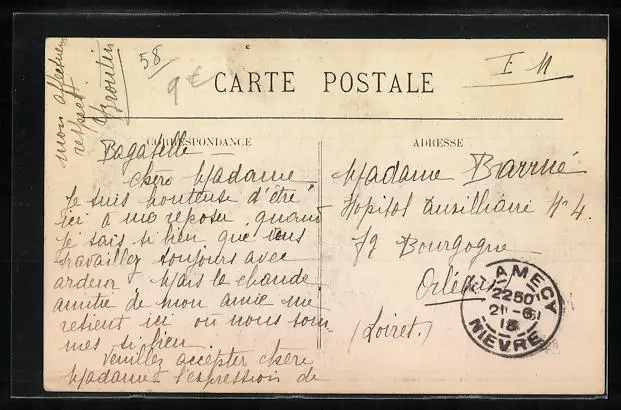 58
9 €
F M
CARTE POSTALE
CORRESPONDANCE
ADRESSE
Bagatelle
Chère Madame
Je suis honteuse d'être
ici à me reposer quand
je sais si bien que vous
travaillez toujours avec
ardeur. Mais la chaude
amitié de mon amie me
retient ici où nous som-
mes si bien.
Veuillez accepter chère
Madame l'expression de
mon affectueux
respect.
Madame Barrué
Hopital Auxilliaire N° 4.
72 Bourgogne
Orléans
(Loiret.)
AMECY
2250
21-6
15
NIEVRE